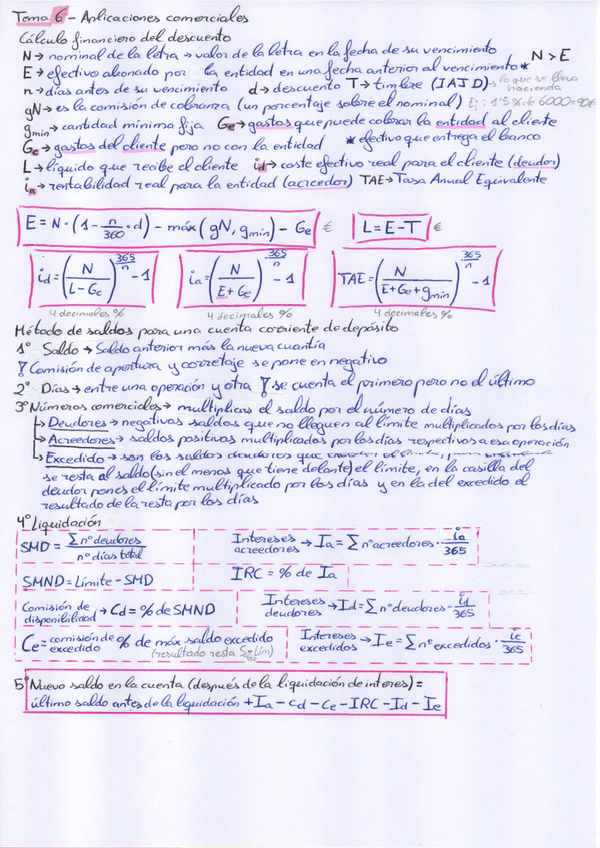 Tema 6 - Aplicaciones comerciales
Cálculo financiero del descuento
N → nominal de la letra → valor de la letra en la fecha de su vencimiento N > E
E → efectivo abonado por la entidad en una fecha anterior al vencimiento *
n → días antes de su vencimiento d → descuento T → timbre (IAJD) → lo que se lleva hacienda
gN → es la comisión de cobranza (un porcentaje sobre el nominal) Ej: 1'5% de 6000 = 90€
gmín → cantidad mínima fija Ge → gastos que puede cobrar la entidad al cliente
Gc → gastos del cliente pero no con la entidad * efectivo que entrega el banco
L → líquido que recibe el cliente id → coste efectivo real para el cliente (deudor)
ia → rentabilidad real para la entidad (acreedor) TAE → Tasa Anual Equivalente
E = N · (1 - n/360 · d) - máx(gN, gmín) - Ge € L = E - T €
id = (N / L - Gc)^365/n - 1 ia = (N / E + Ge)^365/n - 1 TAE = (N / E + Ge + gmín)^365/n - 1
4 decimales % 4 decimales % 4 decimales %
Método de saldos para una cuenta corriente de depósito
1º Saldo → Saldo anterior más la nueva cuantía
! Comisión de apertura y corretaje se pone en negativo
2º Días → entre una operación y otra ! se cuenta el primero pero no el último
3º Números comerciales → multiplicas el saldo por el número de días
→ Deudores → negativas saldos que no lleguen al límite multiplicados por los días
→ Acreedores → saldos positivas multiplicados por los días respectivos a esa operación
→ Excedido → son los saldos deudores que
se resta al saldo (sin el menos que tiene delante) el límite, en la casilla del
deudor pones el límite multiplicado por los días y en la del excedido el
resultado de la resta por los días
4º Liquidación
SMD = Σ nº deudores / nº días total Intereses acreedores → Ia = Σ nº acreedores · ia/365
SMND = Límite - SMD IRC = % de Ia
Comisión de disponibilidad → Cd = % de SMND Intereses deudores → Id = Σ nº deudores · id/365
Ce = comisión de excedido % de máx saldo excedido Intereses excedidos → Ie = Σ nº excedidos · ie/365
5º Nuevo saldo en la cuenta (después de la liquidación de interes) =
último saldo antes de la liquidación + Ia - Cd - Ce - IRC - Id - Ie